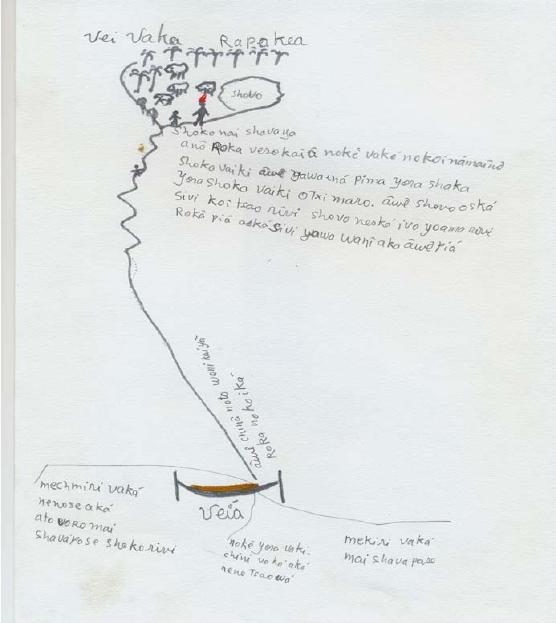 Vei Vaka Rapakea
shovo
Shoko nai shavaya
anõ Roka verokaiã nokẽ vaké nokoi námaũnô
Shoko vaiki ãwẽ yawa iná pima yora shoka
yora shoka vaiki otxi maro. ãwẽ shovo oská
Sivi koi tsao rivi shovo neská ivo yoamo
Rokẽ piá aská sivi yawo wani ako ãwẽ piá
ãwẽ chinã noto wani kaiyã
Roka no koiká
Veiá
mechmiri vaká
nenose aká
ato voro mai
shavapose shokorivi
Nokẽ yora vaki
chini vaká aká
nenõ Tsaowá
mekiri vaká
mai shava paso